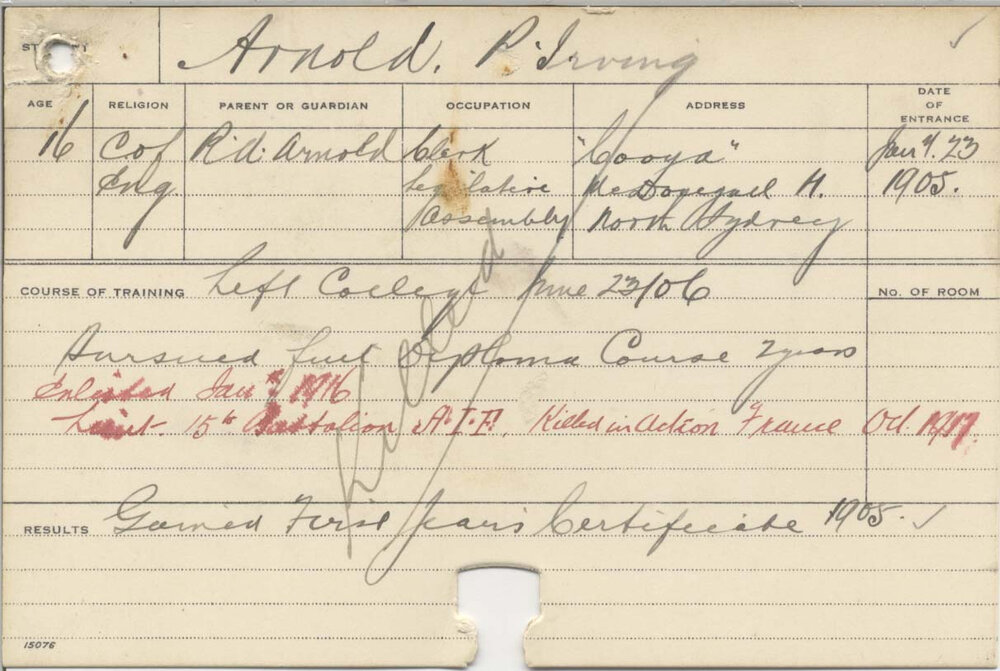 STUDENT Arnold. P. Irving ✓
AGE RELIGION PARENT OR GUARDIAN OCCUPATION ADDRESS DATE OF ENTRANCE
16 C of R. A. Arnold Clerk "Cooya" Jany. 23
Eng Legislative McDougall St. 1905.
Assembly North Sydney
COURSE OF TRAINING Left College June 23/06 No. OF ROOM
Pursued full Diploma Course 2 years
Enlisted Jany. 1916
Lieut. 15th Battalion A.I.F. Killed in Action France Oct. 1917.
Killed
RESULTS Gained First Years Certificate 1905. ✓
15076